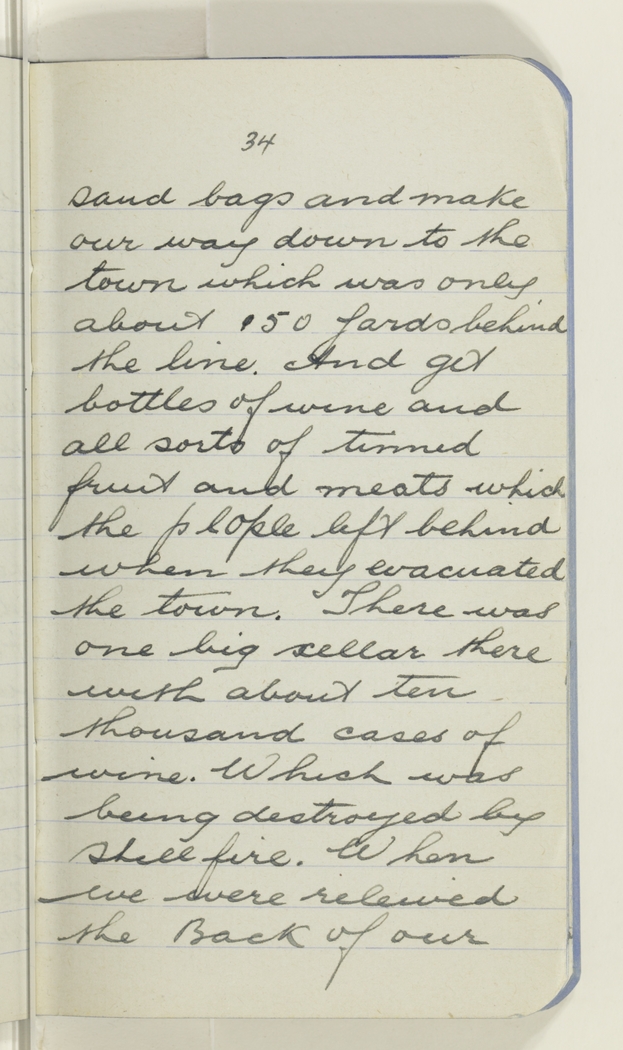 34
sand bags and make
our way down to the
town which was only
about 150 yards behind
the line. And get
bottles of wine and
all sorts of tinned
fruit and meats which
the plople left behind
when they evacuated
the town. There was
one big sellar there
with about ten
thousand cases of
wine. Which was
being destroyed by
shell fire. When
we were releived
the Back of our